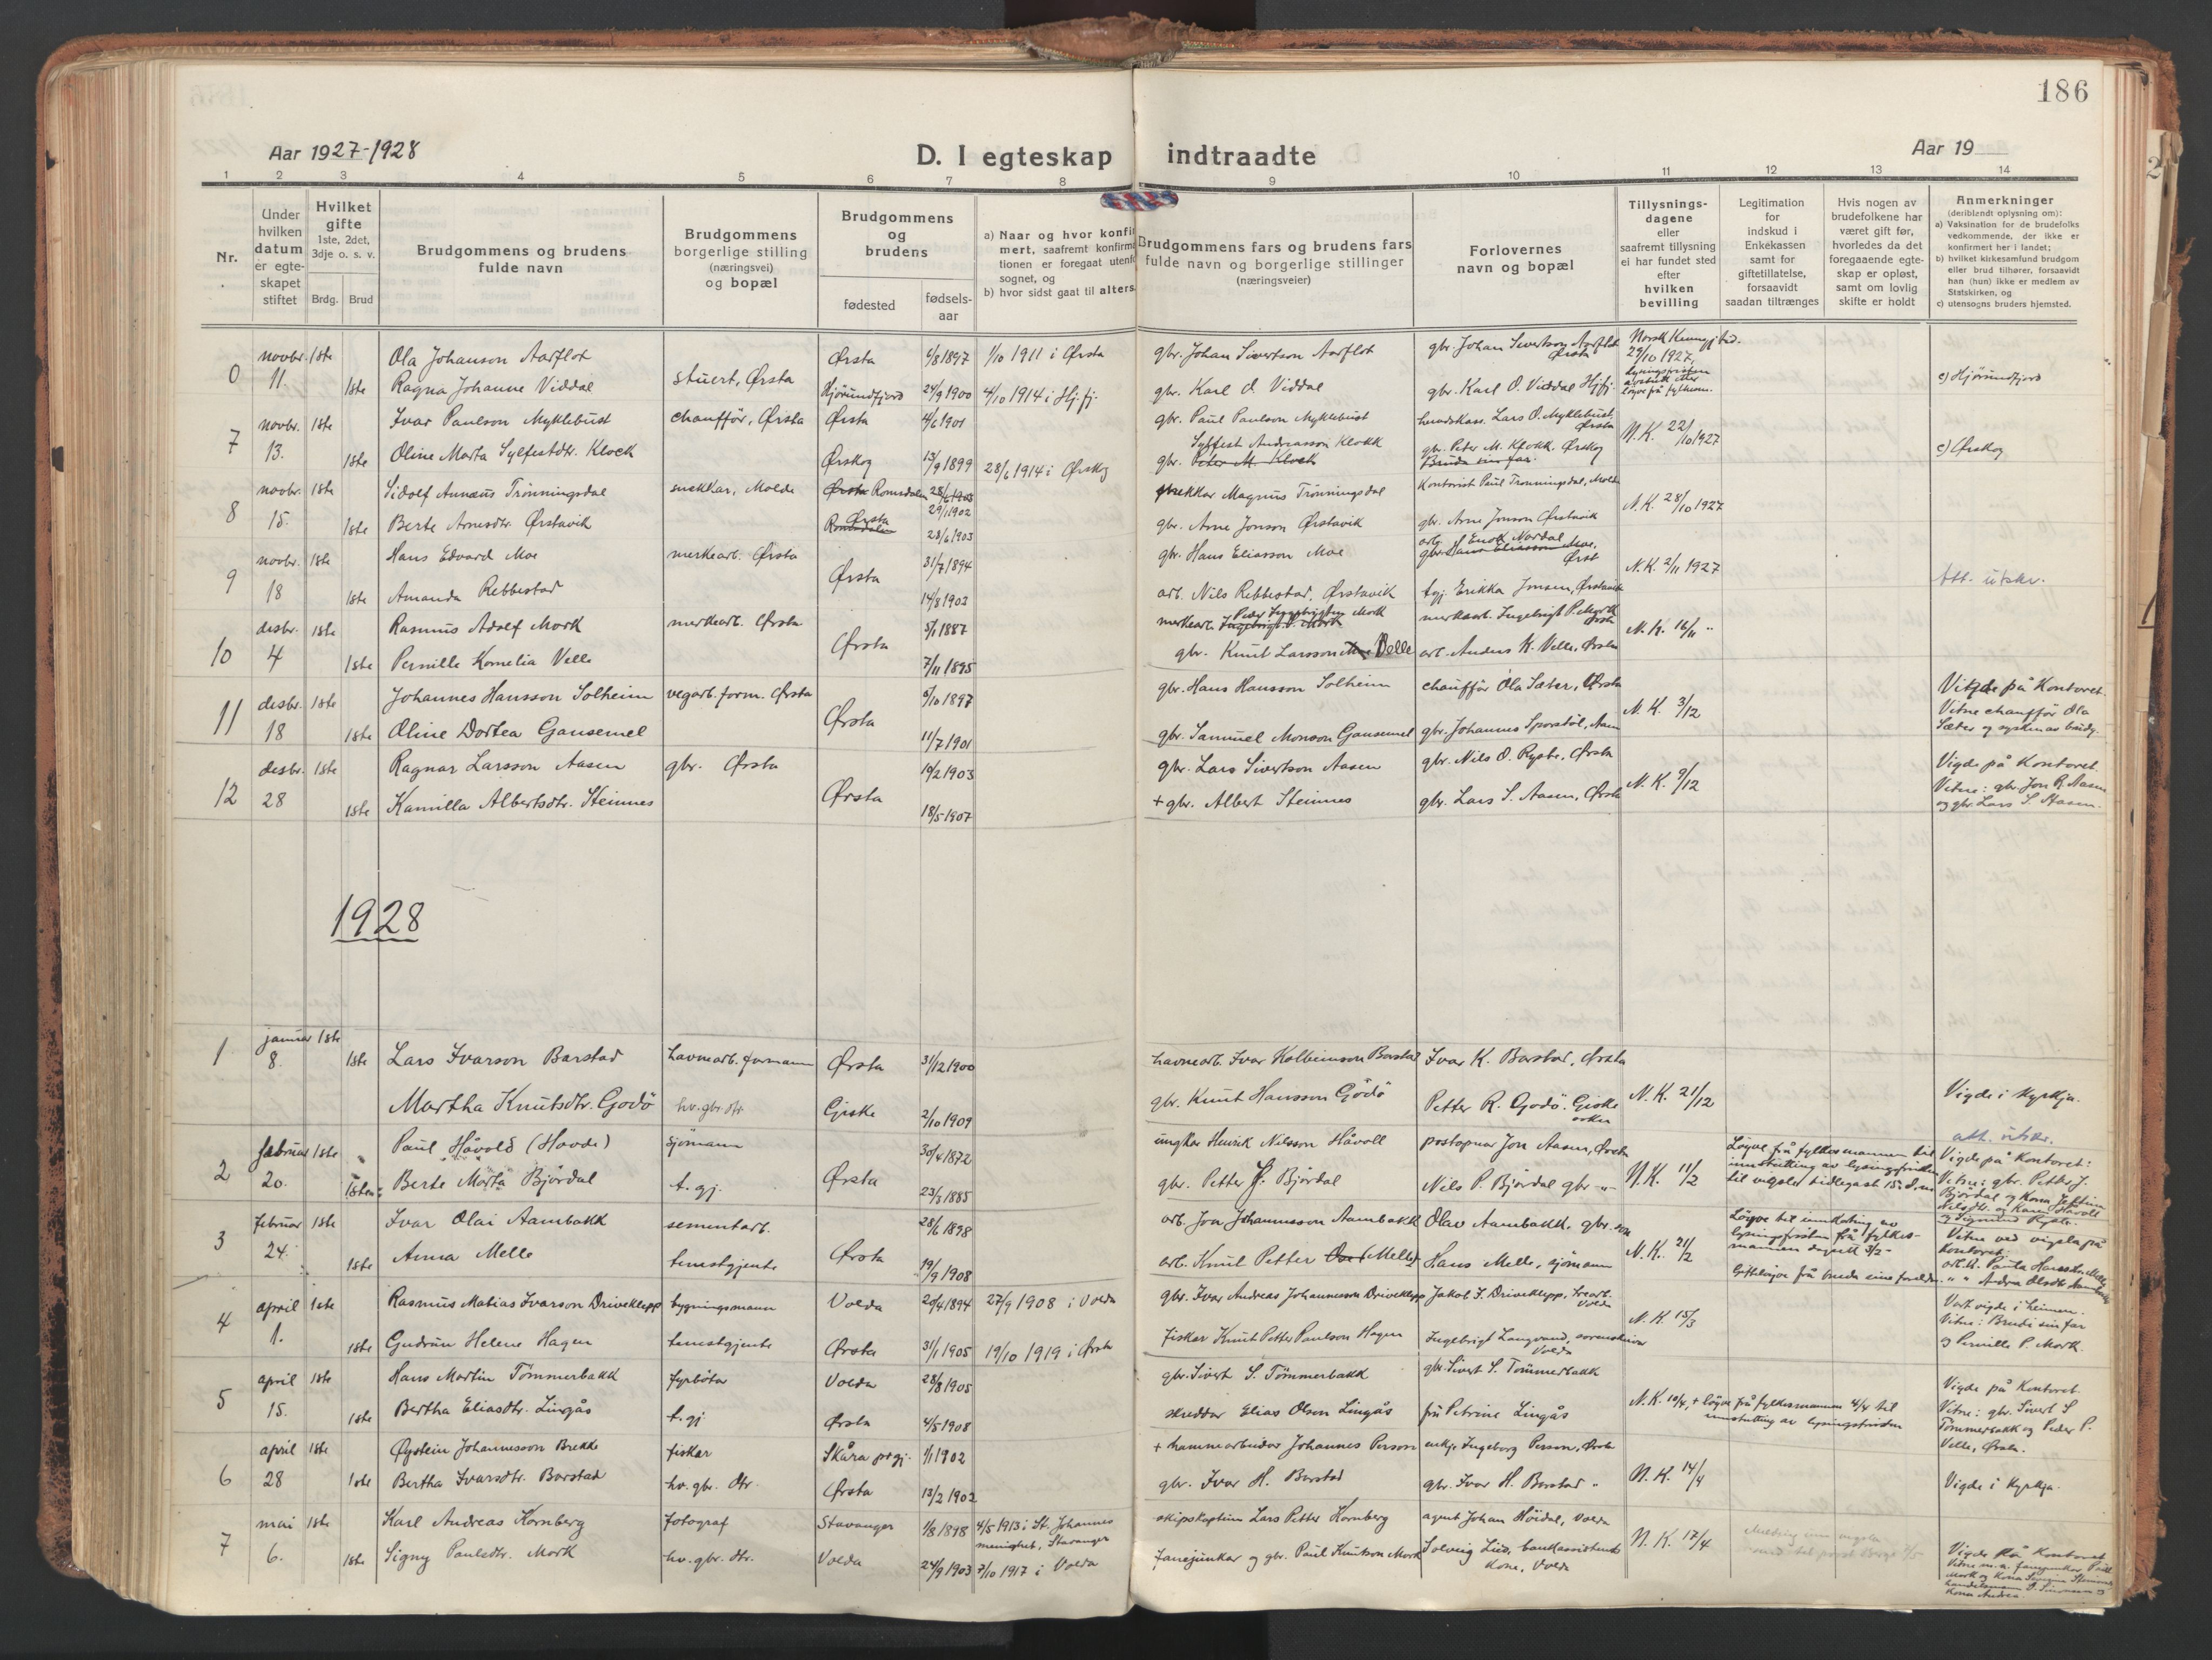 186
Aar 1927-1928
D. I egteskap indtraadte
Aar 19
1 2 3 4 5 6 7 8 9 10 11 12 13 14
Nr.
Under hvilken datum er egte-skapet stiftet
Hvilket gifte 1ste, 2det, 3dje o. s. v.
Brdg. Brud
Brudgommens og brudens fulde navn
Brudgommens borgerlige stilling (næringsvei) og bopæl
Brudgommens og brudens
fødested
fødsels-aar
a) Naar og hvor konfir
mert, saafremt konfirma
tionen er foregaat utenfo
sognet, og
b) hvor sidst gaat til alters.
Brudgommens fars og brudens fars fulde navn og borgerlige stillinger (næringsveier)
Forlovernes navn og bopæl
Tillysnings-dagene eller saafremt tillysning ei har fundet sted efter hvilken bevilling
Legitimation for indskud i Enkekassen samt for giftetillatelse, forsaavidt saadan tiltrænges
Hvis nogen av brudefolkene har været gift før, hvorledes da det foregaaende egte-skap er opløst, samt om lovlig skifte er holdt
Anmerkninger
(deriblandt oplysning om):
a) Vaksination for de brudefolks vedkommende, der ikke er konfirmert her i landet;
b) hvilket kirkesamfund brudgom eller brud tilhører, forsaavidt han (hun) ikke er medlem av Statskirken, og
c) utensogns bruders hjemsted.
0 novbr. 11. 1ste Ola Johanson Aarflot Ørsta 6/8 1897 1/10 1911 i Ørsta gbr. Johan Sivertson Aarflot gbr. Johan Sivertson Aarflot Ørsta Norsk Kunngj.tid. 29/10 1927,
1ste Ragna Johanne Viddal stuert, Ørsta Hjørundfjord 24/9 1900 4/10 1914 i Hj.fj. gbr. Karl O. Viddal gbr. Karl O. Viddal Hj.fj. c) Hjørundfjord
7 novbr. 13. 1ste Ivar Paulson Myklebust chaufför, Ørsta Ørsta 4/6 1901 gbr. Paul Paulson Myklebust heradskass. Lars O. Myklebust, Ørsta N.K. 22/10 1927
1ste Oline Marta Sylfestdtr. Klock Ørskog 13/9 1899 28/6 1914 i Ørskog gbr. Peter M. Klock Sylfest Andreasson Klokk gbr. Peter M. Klokk, Ørskog Bruda sin far. c) Ørskog
8 novbr. 15. 1ste Sidolf Annæus Trönningsdal snekkar, Molde Ørsta Romsdalen 28/6 1903 29/1 1902 snekkar Magnus Trönningsdal Kontorist Paul Trönningsdal, Molde N.K. 28/10 1927
1ste Berte Arnesdtr. Ørstavik Romsdalen Ørsta 28/6 1903 gbr. Arne Jonson Ørstavik gbr. Arne Jonson Ørstavik
9 novbr. 18 1ste Hans Edvard Moe merkearb. Ørsta Ørsta 31/7 1894 gbr. Hans Eliasson Moe arb. Enok Nordal gbr. Hans Eliasson Moe, Ørst N.K. 2/11 1927
1ste Amanda Rebbestad 14/8 1902 arb. Nils Rebbestad, Ørstavik tgj. Erikka Jonsen, Ørstavik Att. utskr.
10 desbr. 4 1ste Rasmus Adolf Mork merkearb. Ørsta Ørsta 5/1 1887 merkearb. Ingebrigt P. Mork Peder Ingebrigtson Mork merkearb. Ingebrigt P. Mork Ørsta N.K. 16/11 "
1ste Pernille Kornelia Velle 7/11 1895 gbr. Knut Larsson Velle arb. Anders K. Velle, Ørsta
11 desbr. 18 1ste Johannes Hansson Solheim vegarb. form. Ørsta Ørsta 5/10 1897 gbr. Hans Hansson Solheim chaufför Ola Sæter, Ørsta N.K. 3/12 Vigde på Kontoret.
1ste Oline Dortea Gausemel 11/7 1901 gbr. Samuel Monson Gausemel gbr. Johannes Sporstöl, Aam Vitne chaufför Ola Sæter og systra av brudg.
12 desbr. 28 1ste Ragnar Larsson Aasen gbr. Ørsta Ørsta 19/2 1903 gbr. Lars Sivertson Aasen gbr. Nils O. Rypte, Ørsta N.K. 9/12 Vigde på Kontoret.
1ste Kamilla Albertsdtr. Steinnes 18/5 1907 + gbr. Albert Steinnes gbr. Lars S. Aasen, Ørsta Vitne: gbr. Jon R. Aasen og gbr. Lars S. Aasen.
1928
1 januar 8. 1ste 1ste Lars Ivarson Barstad havnearb. formann Ørsta 31/12 1900 havnearb. Ivar Kolbeinson Barstad Ivar K. Barstad, Ørsta
Martha Knutsdtr. Godö hv. gbr. dtr. Giske 2/10 1909 gbr. Knut Hansson Godö Petter R. Godö. Giske sokn N.K. 21/12 Vigde i Kyrkja.
2 februar 20. 1ste Paul Håvold (Hovde) sjömann Ørsta 30/4 1872 ungkar Henrik Nilsson Håvoll postopnar Jon Aasen, Ørsta N.K. 11/2 Löyve frå fylkesmannen til innstutting av lysingsfristen til vigsla tidlegast 15. d.m. att. utskr.
1ste Berte Marta Björdal t. gj. 23/3 1885 gbr. Petter J. Björdal Nils P. Björdal gbr. -"- Vigde på Kontoret: Vitne: gbr. Petter J. Björdal og Kona
3 februar 24. 1ste Ivar Olai Aambakk sementarb. Ørsta 28/6 1898 arb. Jon Johannesson Aambakk Olav Aambakk, gbr. son N.K. 21/2
1ste Anna Melle tenestgjente 19/9 1908 arb. Knut Petter Melle Hans Melle, sjömann Vitne ved vigsla på Kontoret:
4 april 1. 1ste Rasmus Matias Ivarson Driveklepp bygningsmann Volda 20/4 1894 27/9 1908 i Volda gbr. Ivar Andreas Johannesson Driveklepp Jakob I. Driveklepp, trearb. Volda N.K. 15/3
1ste Gudrun Helene Hagen tenestgjente Ørsta 31/1 1905 19/10 1919 i Ørsta fiskar Knut Petter Paulson Hagen Ingebrigt Langvand, Volda Vart vigde i heimen. Vitne: Brudi sin far og Pernille P. Mork.
5 april 15. 1ste Hans Martin Tömmerbakk fyrböta Volda 28/8 1905 gbr. Sivert S. Tömmerbakk gbr. Sivert S. Tömmerbakk
1ste Bertha Eliasdtr. Lingås t. gj. Ørsta 4/5 1908 skreddar Elias Olson Lingås fru Petrine Lingås N.K. 10/4, + löyve frå fylkesmannen 4/4 til innstutting av lysingsfristen Vigde på Kontoret. Vitne: gbr. Sivert S. Tömmerbakk og Peder P. Velle, Ørsta.
6 april 28 1ste Øystein Johannesson Brekke fiskar Skåra prgj. 1/1 1902 + hammararbeidar Johannes Person enkje Ingeborg Person, Ørsta
1ste Bertha Ivarsdtr. Barstad hv. gbr. dtr. Ørsta 13/2 1902 gbr. Ivar H. Barstad gbr. Ivar H. Barstad " N.K. 14/4 Vigde i Kyrkja.
7 mai 6. 1ste Karl Andreas Kornberg fotograf Stavanger 1/8 1898 4/5 1913 i St. Johannes menighet, Stavanger skipskaptein Lars Petter Kornberg agent Johan Höidal, Volda N.K. 17/4
1ste Signy Paulsdtr. Mork hv. gbr. dtr. Volda 24/9 1903 7/10 1917 i Volda fanejunkar og gbr. Paul Knutson Mork Solveig Lid, bankassistent Kone, Volda Vigde på Kontoret.